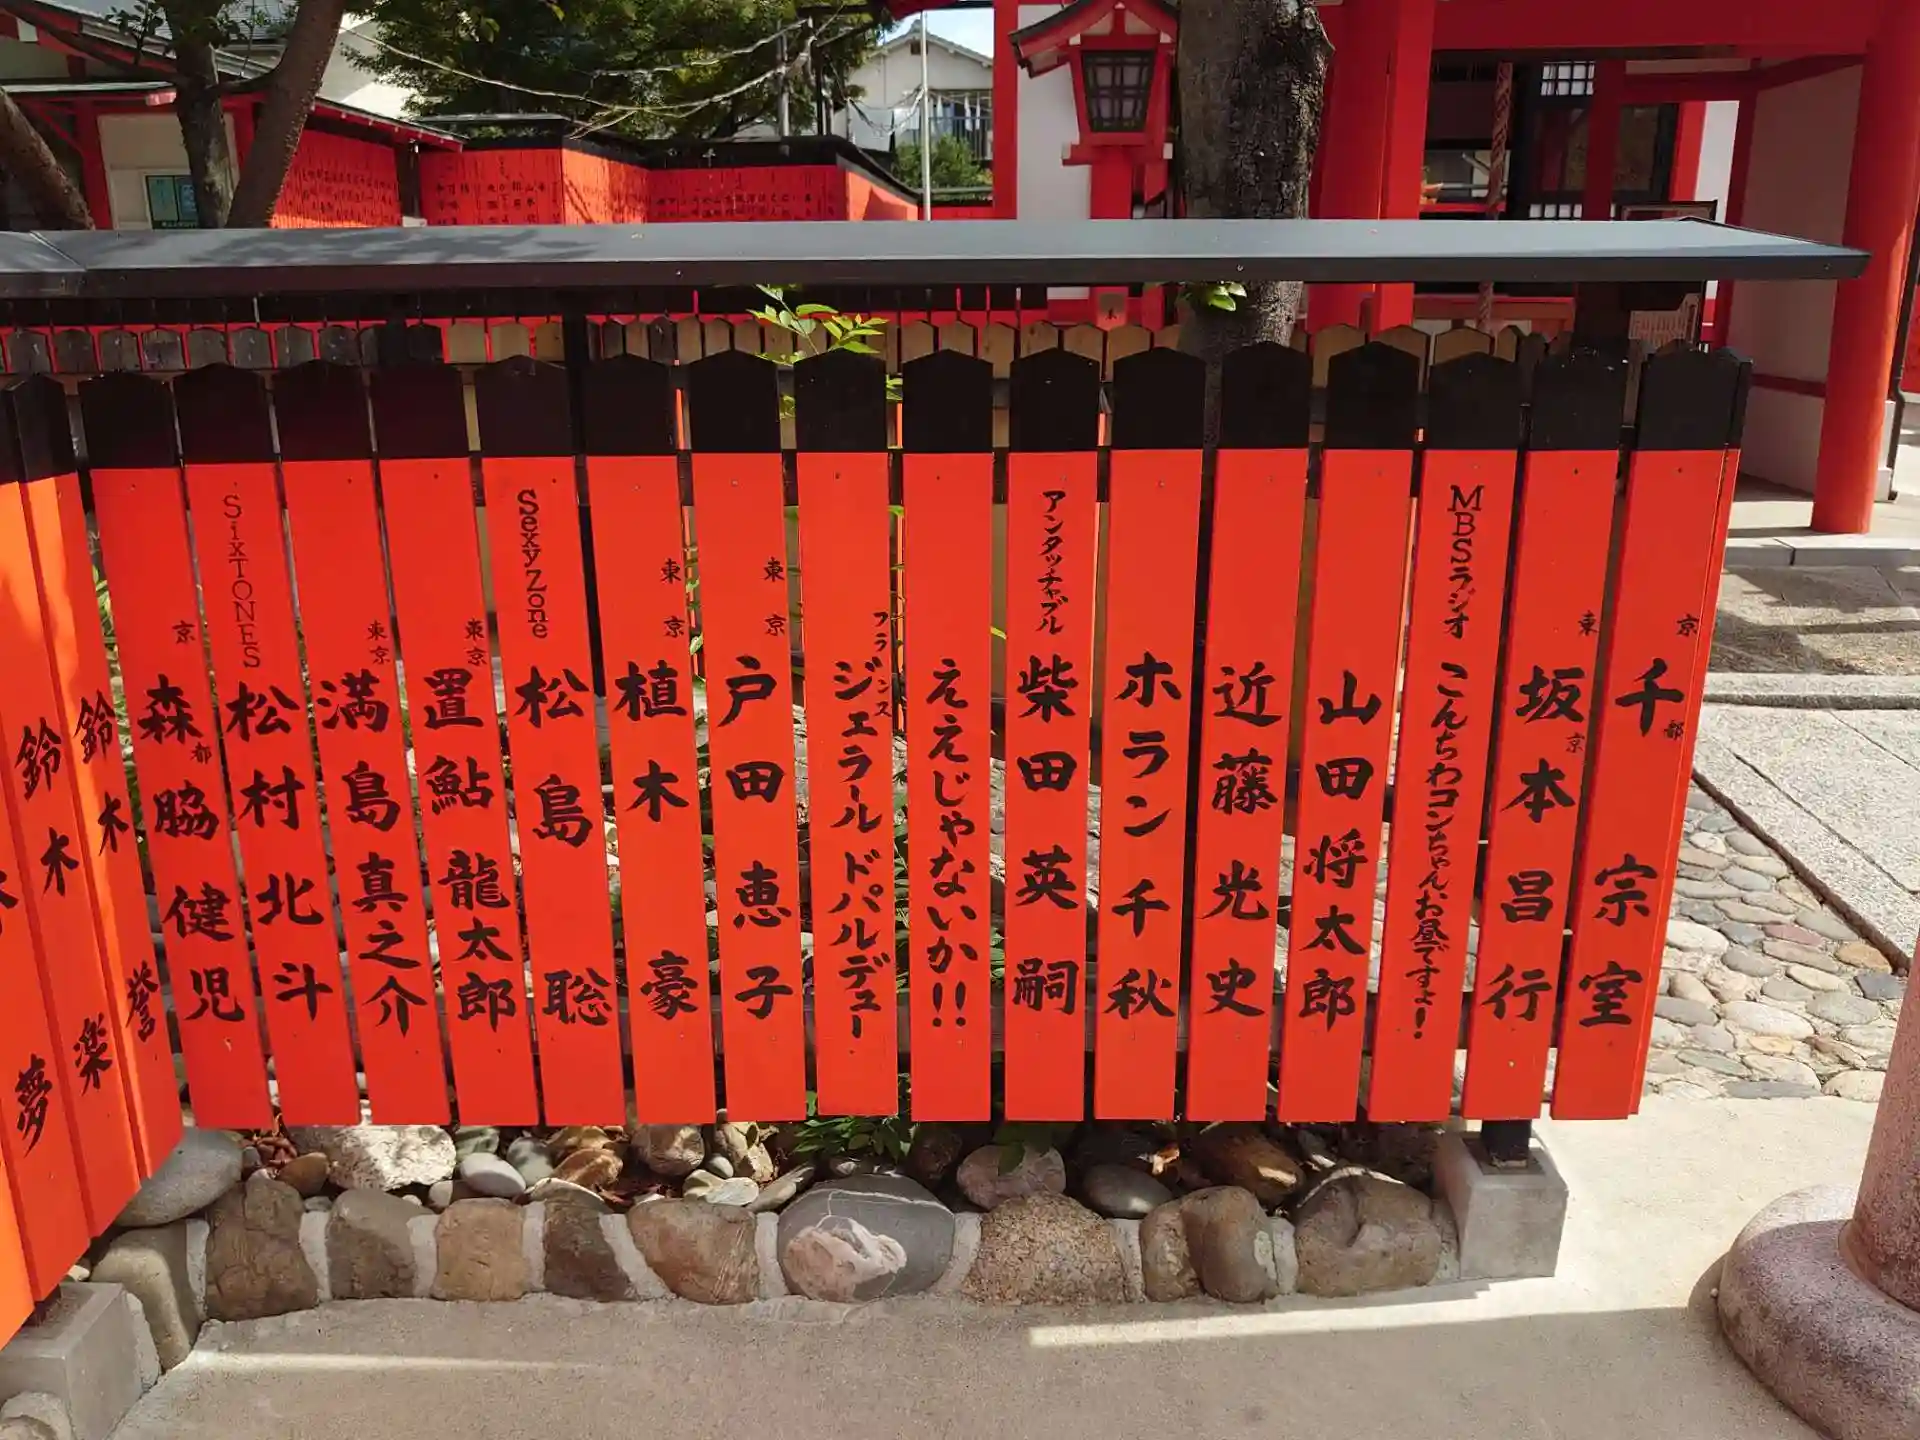 京都 千宗室
東京 坂本昌行
MBSラジオ こんちわコンちゃん、お昼ですょ!
山田将太郎
近藤光史
ホラン千秋
アンタッチャブル 柴田英嗣
ええじゃないか!!
フランス ジェラールドパルデュー
東京 戸田恵子
東京 植木豪
SexyZone 松島聡
東京 置鮎龍太郎
東京 満島真之介
SixTONES 松村北斗
京都 森脇健児
鈴木誉
鈴木楽
夢